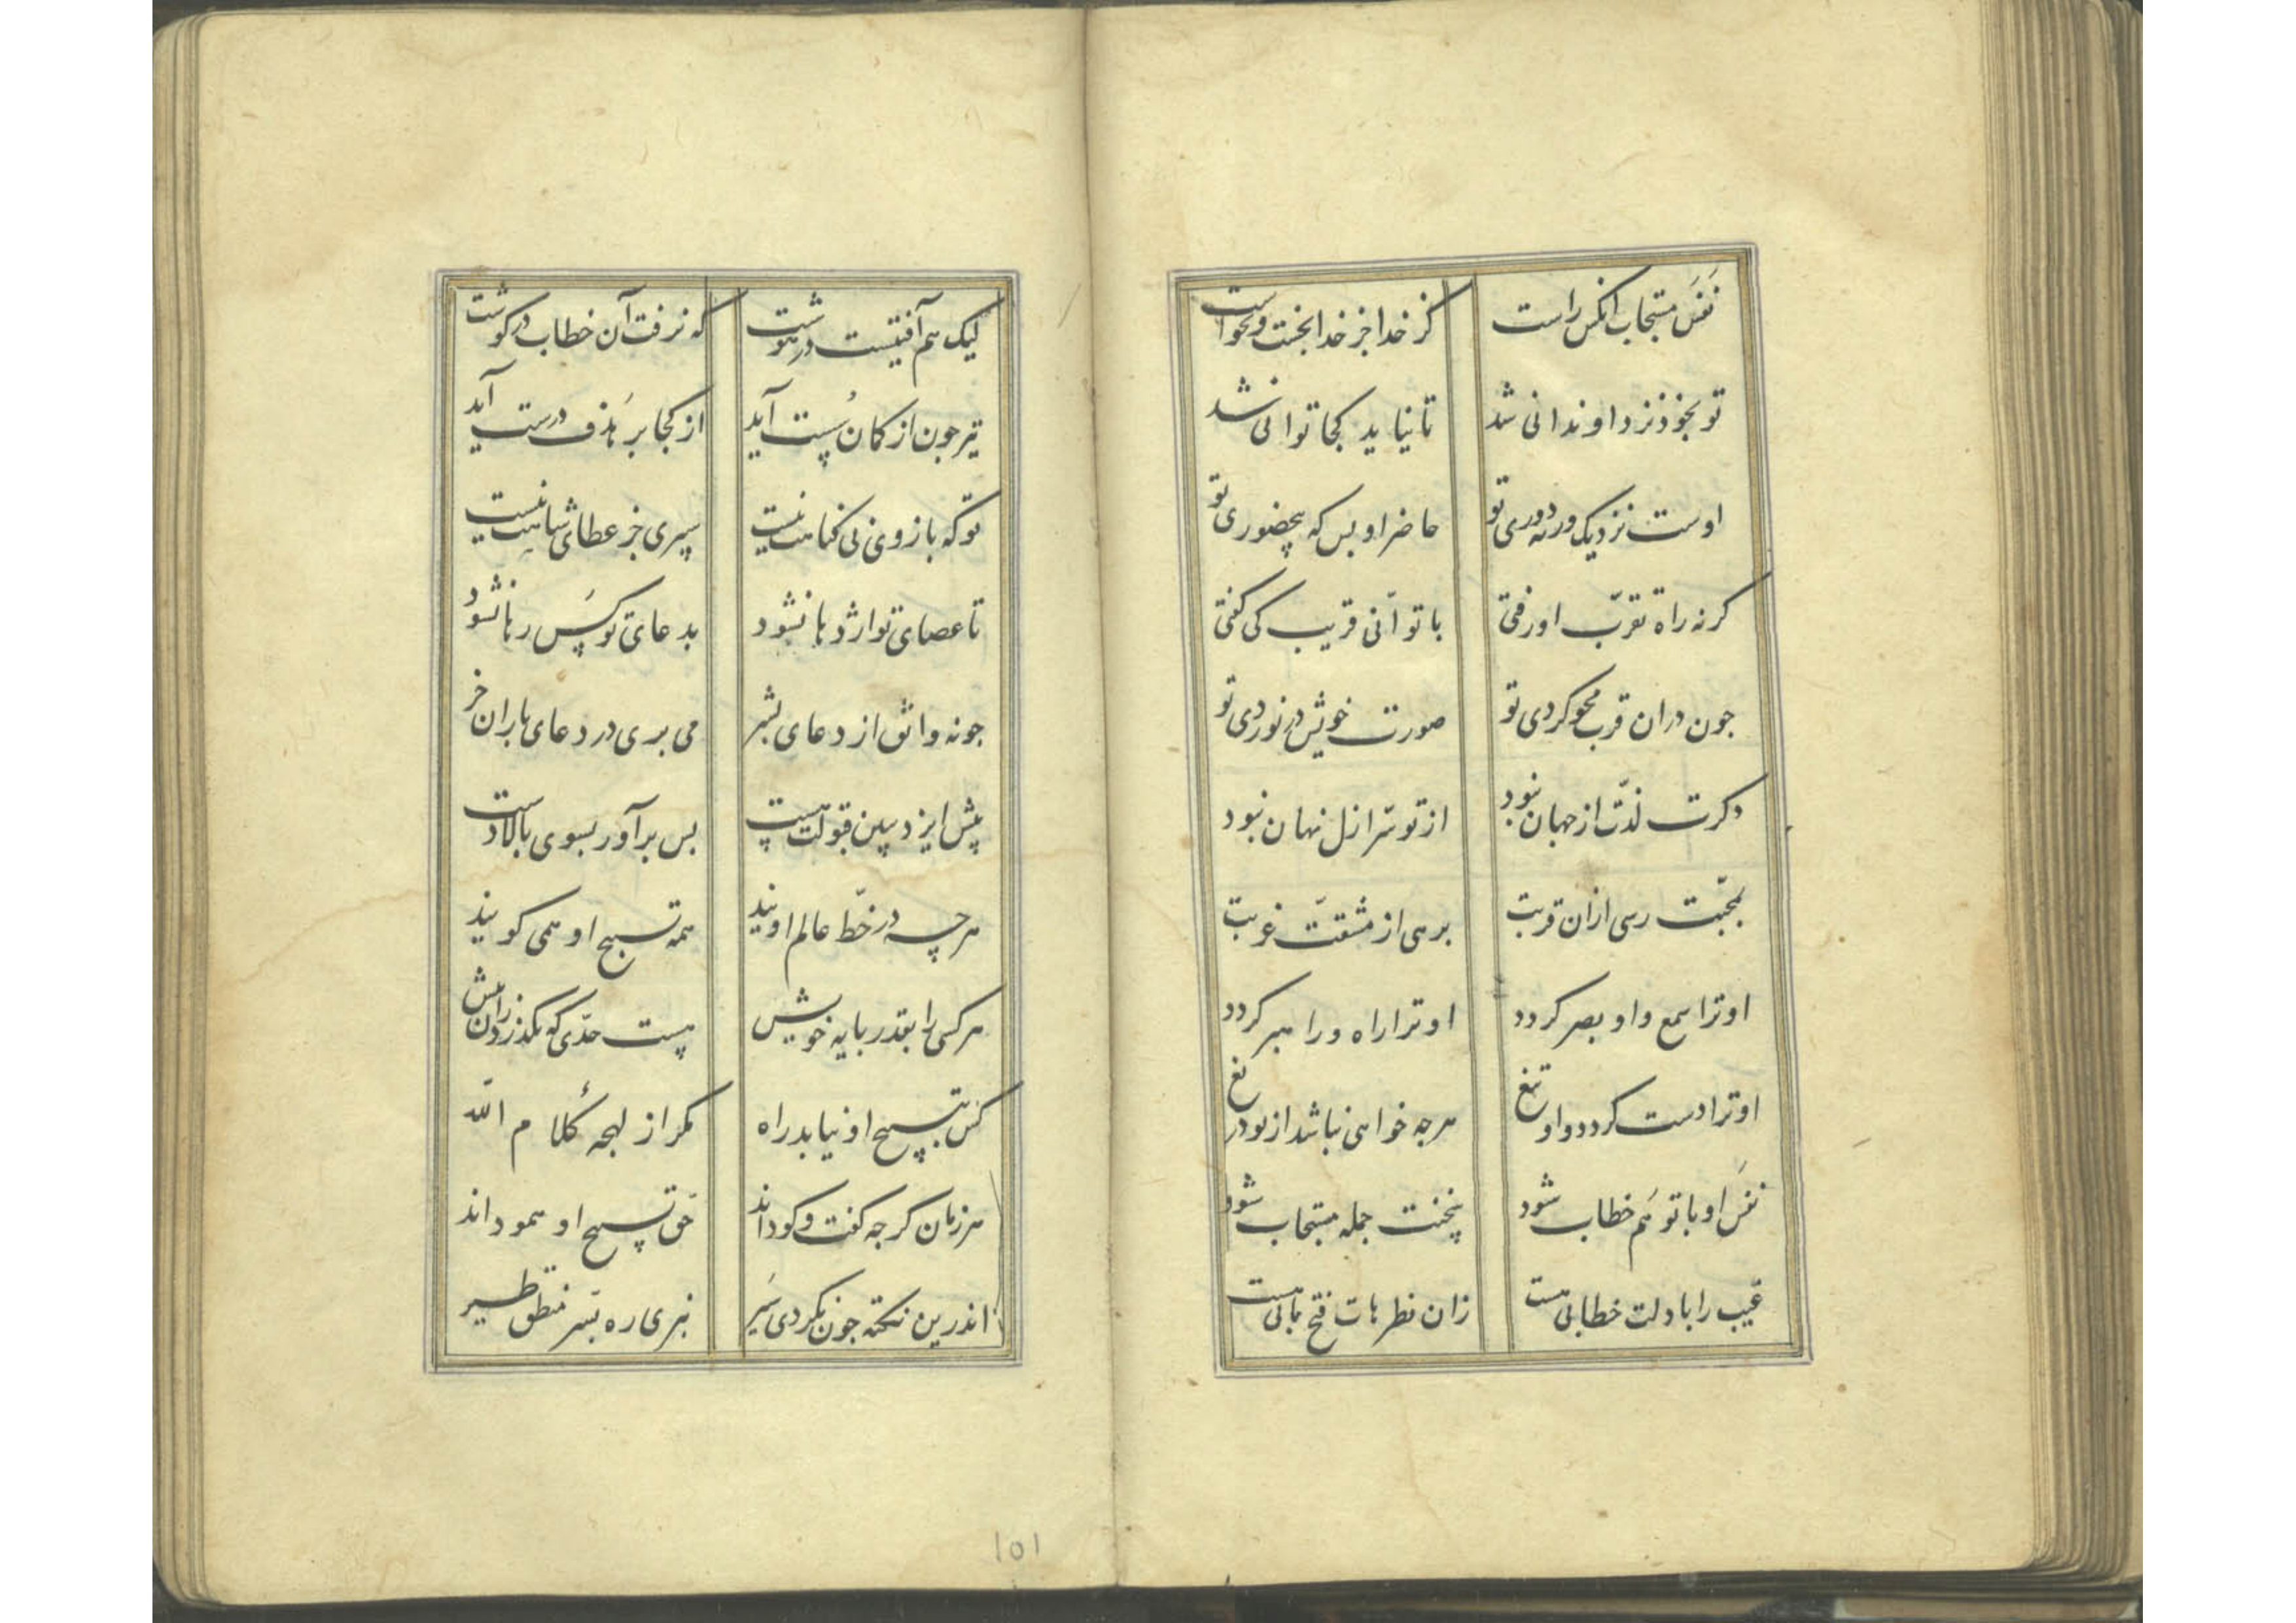 نفَس مستجاب انکس راست کز خدا جز خدا نجست و نخواست
تو بخوذ نزد او ندانی شد تا نیاید کجا توانی شد
اوست نزدیک ورنه دوری تو حاضر او بس که بیحضوری تو
کرنه راه تقرّب او رفتی با تو انّی قریب کی کفتی
جون دران قرب محو کردی تو صورت خویش در نوردی تو
دکرت لذّت از جهان نبود از تو سّر ازل نهان نبود
بمحبّت رسی ازان قربت برهی از مشقّت غربت
او ترا سمع و او بصر کردد او ترا راه و راهبر کردد
او ترا دست کردد و او تیغ هرجه خواهی نباشد از تو دریغ
نفَس او با تو هَم خطاب شود سخنت جمله مستجاب شود
غیب را با دلت خطابی هست زان نظرهات فتح بابی هست
لیک هم آفتیست در هوشت که نرفت آن خطاب در کوشت
تیر جون از کمان سُست آید از کجا بر هَذف درست آید
تو که بازوی بی کمانت نیست سپری جز عطای شاهت نیست
تا عصای تو اژدها نشود بدعای تو کس رها نشود
جون نه واثق از دعای بشر می بری در دعای باران خر
پیش ایزد ببین قبولت هست پس برآور بسوی بالا دست
هرچه در خطّ عالم اویند همه تسبیح او همی کویند
هر کسی را بقدر بایه خویش هست حدّی که نکذرد زانش
کس بتسبیح او نیابد راه مکر از لهجه کلام اللّه
هر زمان کرجه کفت و کود اند حق تسبیح او همو داند
اندرین نکته جون نکردی سَیر نبری ره بسّر منطق طیر
101